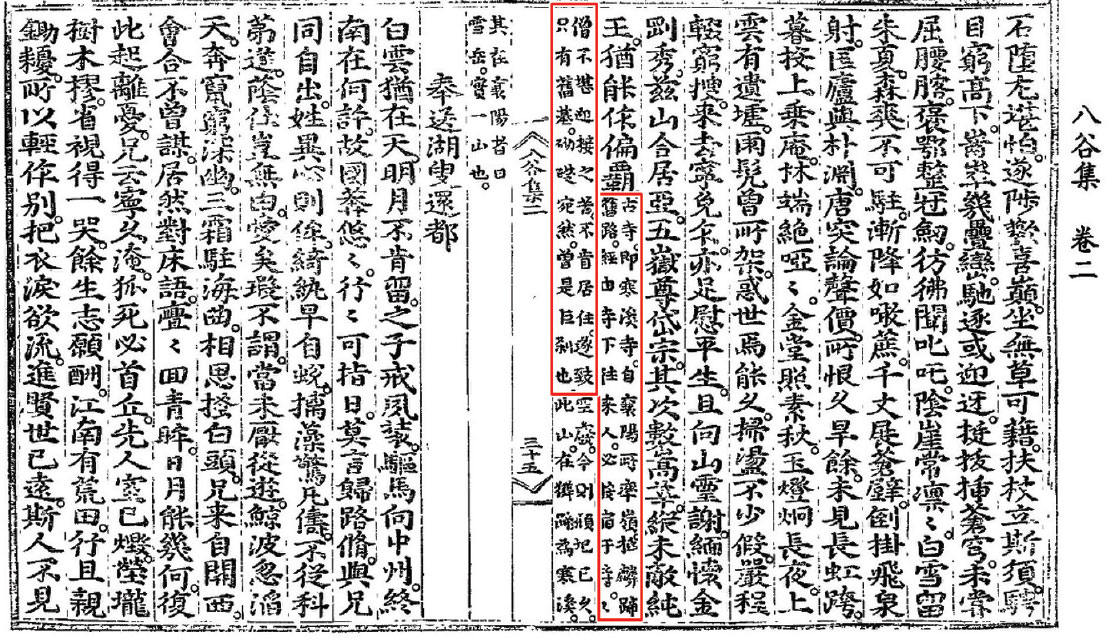 八谷集 卷二
石墮尤遊怕。遂陟歡喜巓。坐無草可藉。扶杖立斯須。騁
目窮高下。巒。馳逐或迎迓。挺拔揷蒼穹。
屈腰胯。褒鄂整冠劒。彷彿聞叱咤。陰崖常凛〻。白雪留
朱夏。森爽不可駐。漸降如噉蔗。千丈展蒼壁。倒掛飛泉
射。匡廬與朴淵。唐突論聲價。所恨久旱餘。未見長虹跨。
暮投上乘庵。林端絶啞〻。金堂照素秋。玉燈炯長夜。上
雲有遺墟。雨髡曾所架。惑世焉能久。掃盪不少假。嚴程
輟窮搜。來去寧免乍。亦足慰平生。且向山靈謝。緬懷金
剛秀。玆山合居亞。五嶽尊岱宗。其次數嵩華。縱未敵純
王。猶能作偏覇。
古寺。即寒溪寺。自襄陽所率嶺抵麟蹄
舊路。經由寺下。往來人。必投宿于寺。〻
僧不堪迎接之苦。不肯居住。遂致空廢。今則頹圮已久。
只有舊基。砌礎宛然。曾是巨刹也。此山在獜蹄爲寒溪。
八谷集二 三十五
其在襄陽者曰
雪岳。實一山也。
奉送湖叟還都
白雲猶在天。明月不肯留。之子戒夙裝。驅馬向中州。終
南在何許。故國莽悠〻。行〻可指日。莫言歸路脩。與兄
同自出。姓異心則侔。綺紈早自蛻。摛藻驚凡儔。不從科
第進。蔭仕豈無由。愛矣瑕不謂。當未厭從遊。鯨波忽滔
天。奔竄窮深幽。三霜駐海曲。相思搔白頭。兄來自關西。
會合不曾謀。居然對床語。亹〻回靑眸。日月能幾何。復
此起離憂。兄云寧久淹。狐死必首丘。先人室已燬。塋壠
樹木樛。省視得一哭。餘生志願酬。江南有荒田。行且親
鋤耰。所以輕作別。把衣淚欲流。進賢世已遠。斯人不見